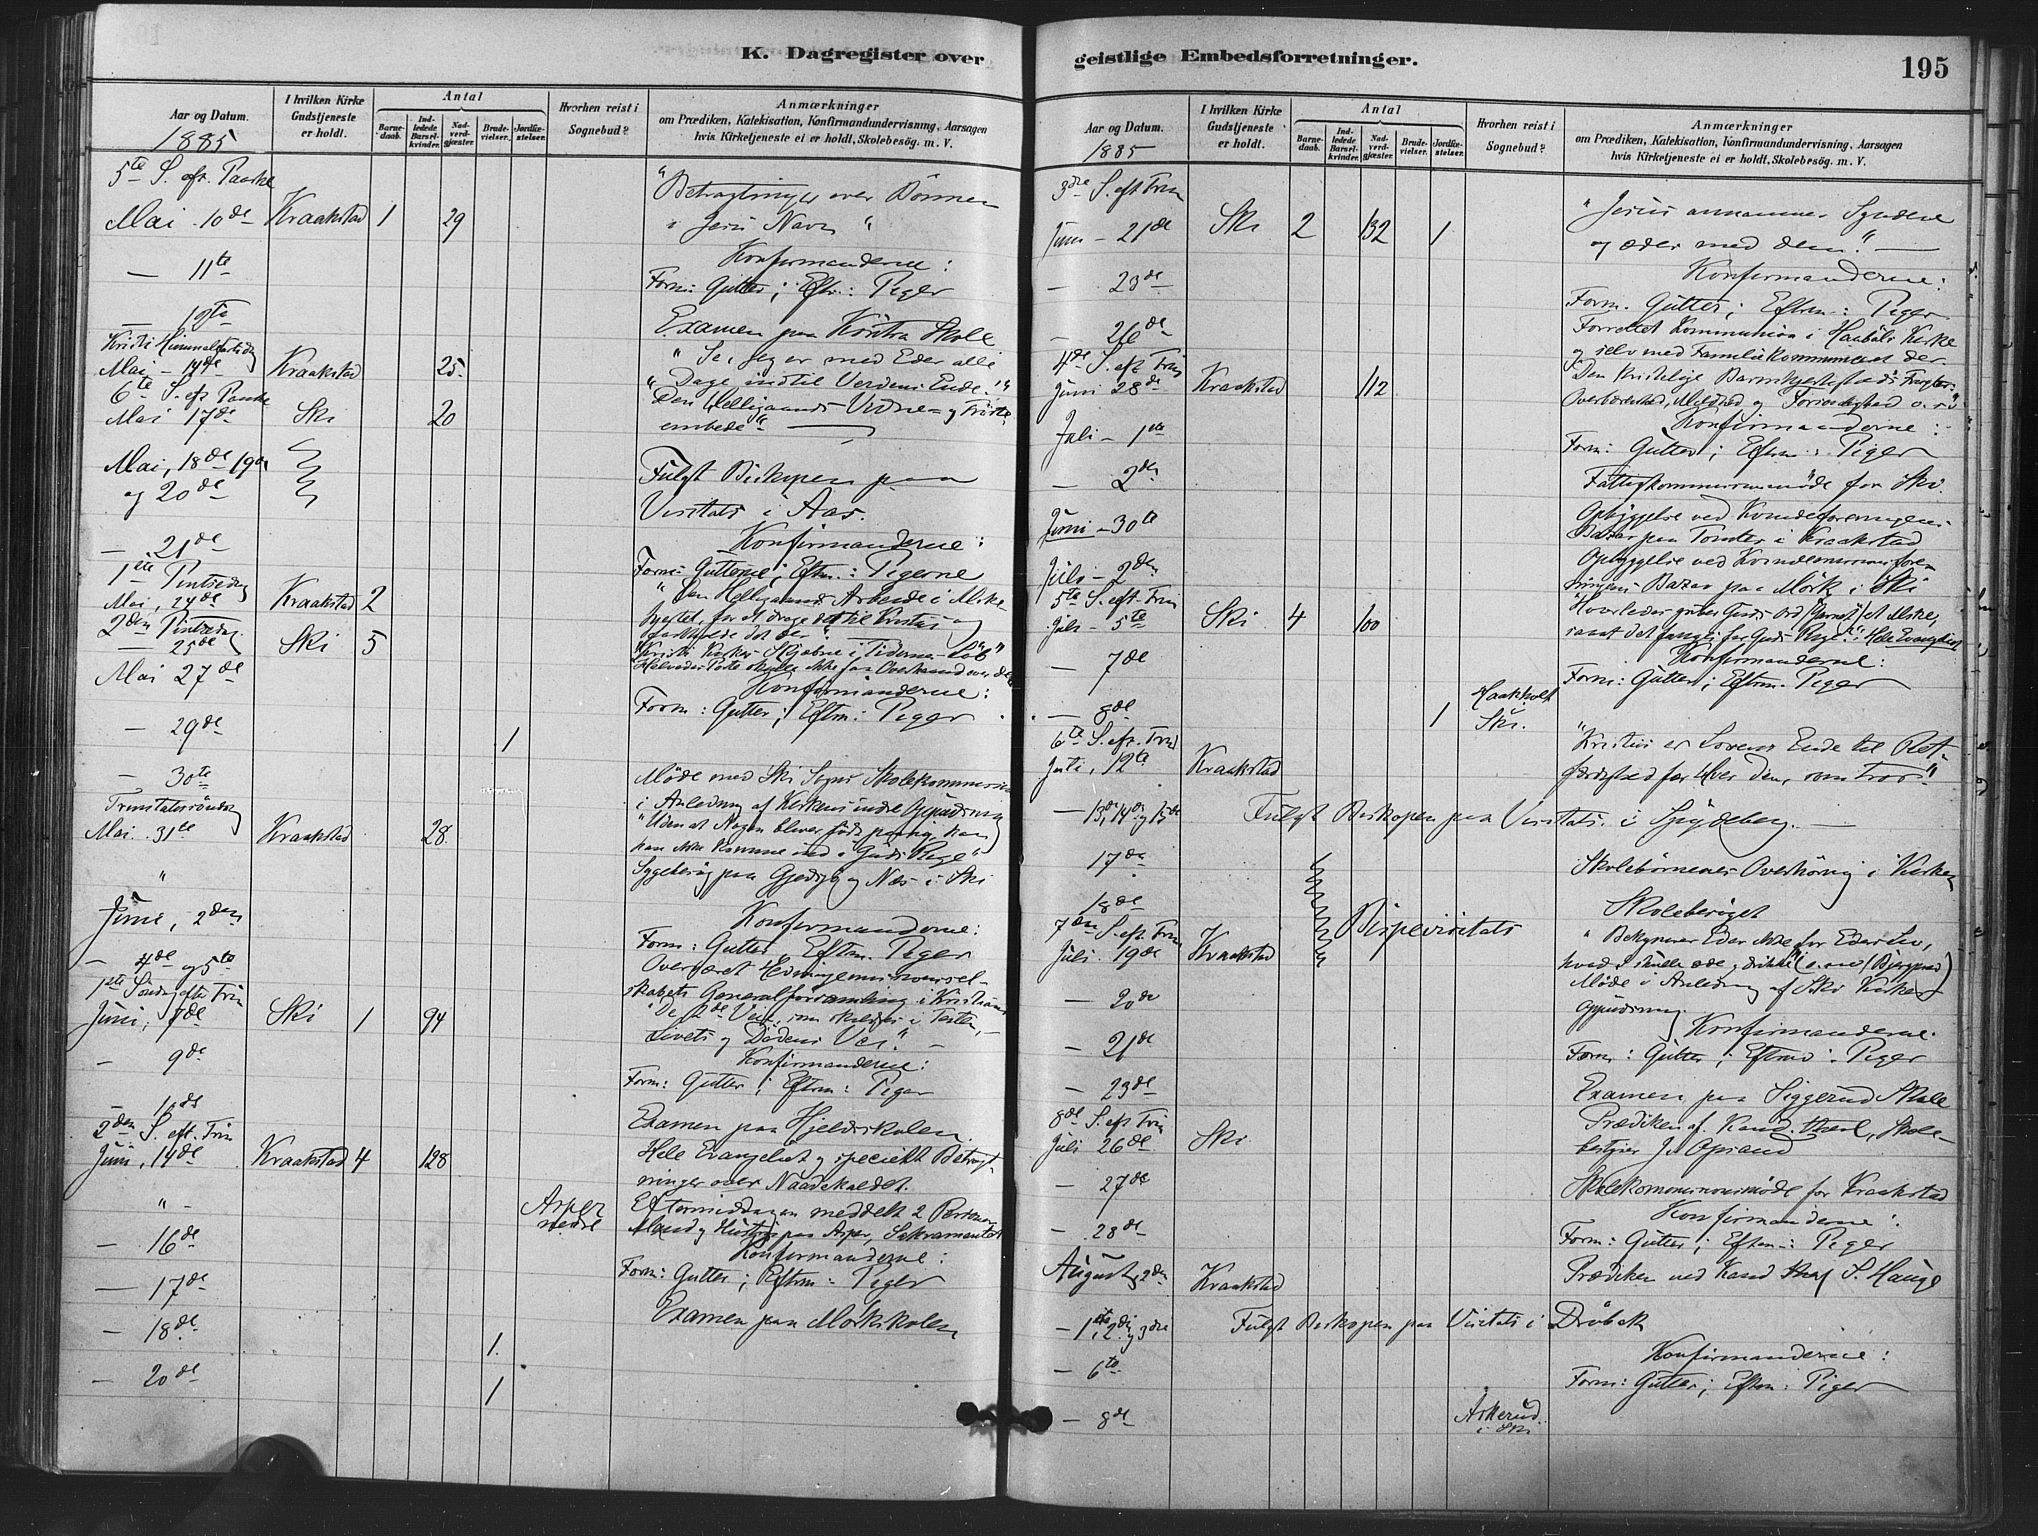 K. Dagregister over
Aar og Datum.
1885
I hvilken Kirke Gudstjeneste er holdt.
Antal
Barne-daab.
Ind-ledede Barsel-kvinder.
Nad-verd-gjæster.
Brude-vielser.
Jordfæ-stelser.
Hvorhen reist i Sognebud?
Anmærkninger
om Prædiken, Katekisation, Konfirmandundervisning, Aarsagen
hvis Kirketjeneste ei er holdt, Skolebesög. m. V.
5te S. eft. Paaske
"Betragtninger over Bönnen
Mai 10de Kraakstad 1 29 i Jesu Navn"
— 11te Konfirmanderne:
Form: Gutter; Eftm: Piger
Examen paa Skole
Kristi Himmelfartsdag
Mai – 14de Kraakstad 25. "Se, jeg er med Eder alle
Dage indtil Verdens Ende!"
6te S. eft. Paaske
Mai 17de Ski 20 Den Helligaands Vidne- og Tröste-
embede"
Mai, 18de 19de Fulgt Biskopen paa
og 20de Visitats i Aas.
— 21de Konfirmanderne:
Form: Gutterne; Eftm: Pigerne
1ste Pintsedag
Mai, 24de Kraakstad 2 "Den Helligaands Arbeide i Menne-
hjertet, for at drage det til Kristus og
fastholde det der"
2den Pintsedag
— 25de Ski 5 "Kristi Kirkes Skjæbne i Tidernes Löb"
Helvedes Porte skulle ikke faa Overhaand over den
Mai 27de Konfirmanderne:
Form: Gutter; Eftm: Piger
— 29de 1
— 30te Möde med Ski Sogns Skolekommission
i Anledning af Kirkens indre Oppudsning
Trinitatissöndag
Mai 31te Kraakstad 28. "Uden at Nogen bliver födt paany, kan
han ikke komme ind i Guds Rige"
" Sygebesög paa Gjedsjö og Næs i Ski
Juni, 2den Konfirmanderne:
Form: Gutter Eftm. Piger
— 4de og 5te Overværet Hedningemissionssel-
skabets Generalforsamling i Kristiania
1ste Söndag efter Trin
Juni, 7de Ski 1 94 "De 2de Veie, som skildres i Texten,
Livets og Dödens Vei."
— 9de Konfirmanderne:
Form: Gutter; Eftm: Piger
— 10de Examen paa Hjeldsskolen
2den S. eft. Trin
Juni, 14de Kraakstad 4 128 Hele Evangeliet og specielt Betragt-
ninger over Naadekaldet.
" Asper nedre Eftermiddagen meddelt 2 Personer
Mand og Hustru paa Asper, Sakramentet
— 16de Konfirmanderne:
Form: Gutter; Eftm: Piger
— 17de Examen paa Morkskolen
— 18de 1.
— 20de 1
geistlige Embedsforretninger.
195
Aar og Datum.
1885
I hvilken Kirke Gudstjeneste er holdt.
Antal
Barne-daab.
Ind-ledede Barsel-kvinder.
Nad-verd-gjæster.
Brude-vielser.
Jordfæ-stelser.
Hvorhen reist i Sognebud?
Anmærkninger
om Prædiken, Katekisation, Konfirmandundervisning, Aarsagen
hvis Kirketjeneste ei er holdt, Skolebesög. m. V.
3die S. eft Trin
Juni – 21de Ski 2 132 1 "Jesus annammer Syndere
og æder med dem." —
— 23de Konfirmanderne:
Form. Gutter; Eftm: Piger
— 26de Forrettet Kommunion i Haaböls Kirke
og selv med Familie kommuniceret der.
4de S. eft Trin
Juni 28de Kraakstad 112 Den kristelige Barmhjertigheds
Overbærenhed, Mildhed og
Juli – 1ste Konfirmanderne:
Form: Gutter; Eftm: Piger
— 2den Fattigkommissionsmöde for Ski.
Juni – 30te Opbyggelse ved Kvindeforeningens
Bazar paa Tomter i Kraakstad
Juli – 2den Opbyggelse ved Kvindemissionsfore-
ningens Bazar paa Mörk i Ski
5te S. eft. Trin
Juli – 5te Ski 4 100 "Hvorledes griber Guds Ord et Menneske,
samt det fanges for Guds Rige." Hele Evangeliet
— 7de Konfirmanderne:
Form: Gutter; Eftm. Piger
— 8de 1 Haakholt Ski.
6te S. eft. Trin
Juli, 12te Kraakstad "Kristus er Lovens Ende til Ret-
færdighed for Hver den, som tror"
— 13de, 14de og 15de Fulgt Biskopen paa Visitats i Spydeberg. —
— 17de Skolebörnenes Overhöring i Kirken
— 18de Skolebesöget
7de S. eft. Trin Bispevisitats
Juli 19de Kraakstad "Bekymrer Eder ikke for Eders Liv,
hvad I skulle æde og drikke"
— 20de Möde i Anledning af Ski Kirkes
Oppudsning.
— 21de Konfirmanderne.
Form: Gutter; Eftm: Piger
— 23de Examen paa Siggerud Skole
8de S. eft Trin
Juli 26de Ski Prædiken af Kand. theol., Skole-
bestyrer J. Opsand
— 27de Skolekommissionsmöde for Kraakstad
— 28de Konfirmanderne:
Form: Gutter; Eftm: Piger
August, 2den Kraakstad Prædiken ved Kand theol S. Hauge
— 1ste, 2den og 3die Fulgt Biskopen paa Visitats i Dröbak
— 6te Konfirmanderne:
Form: Gutter; Eftm: Piger
— 8de Askerud i Ski